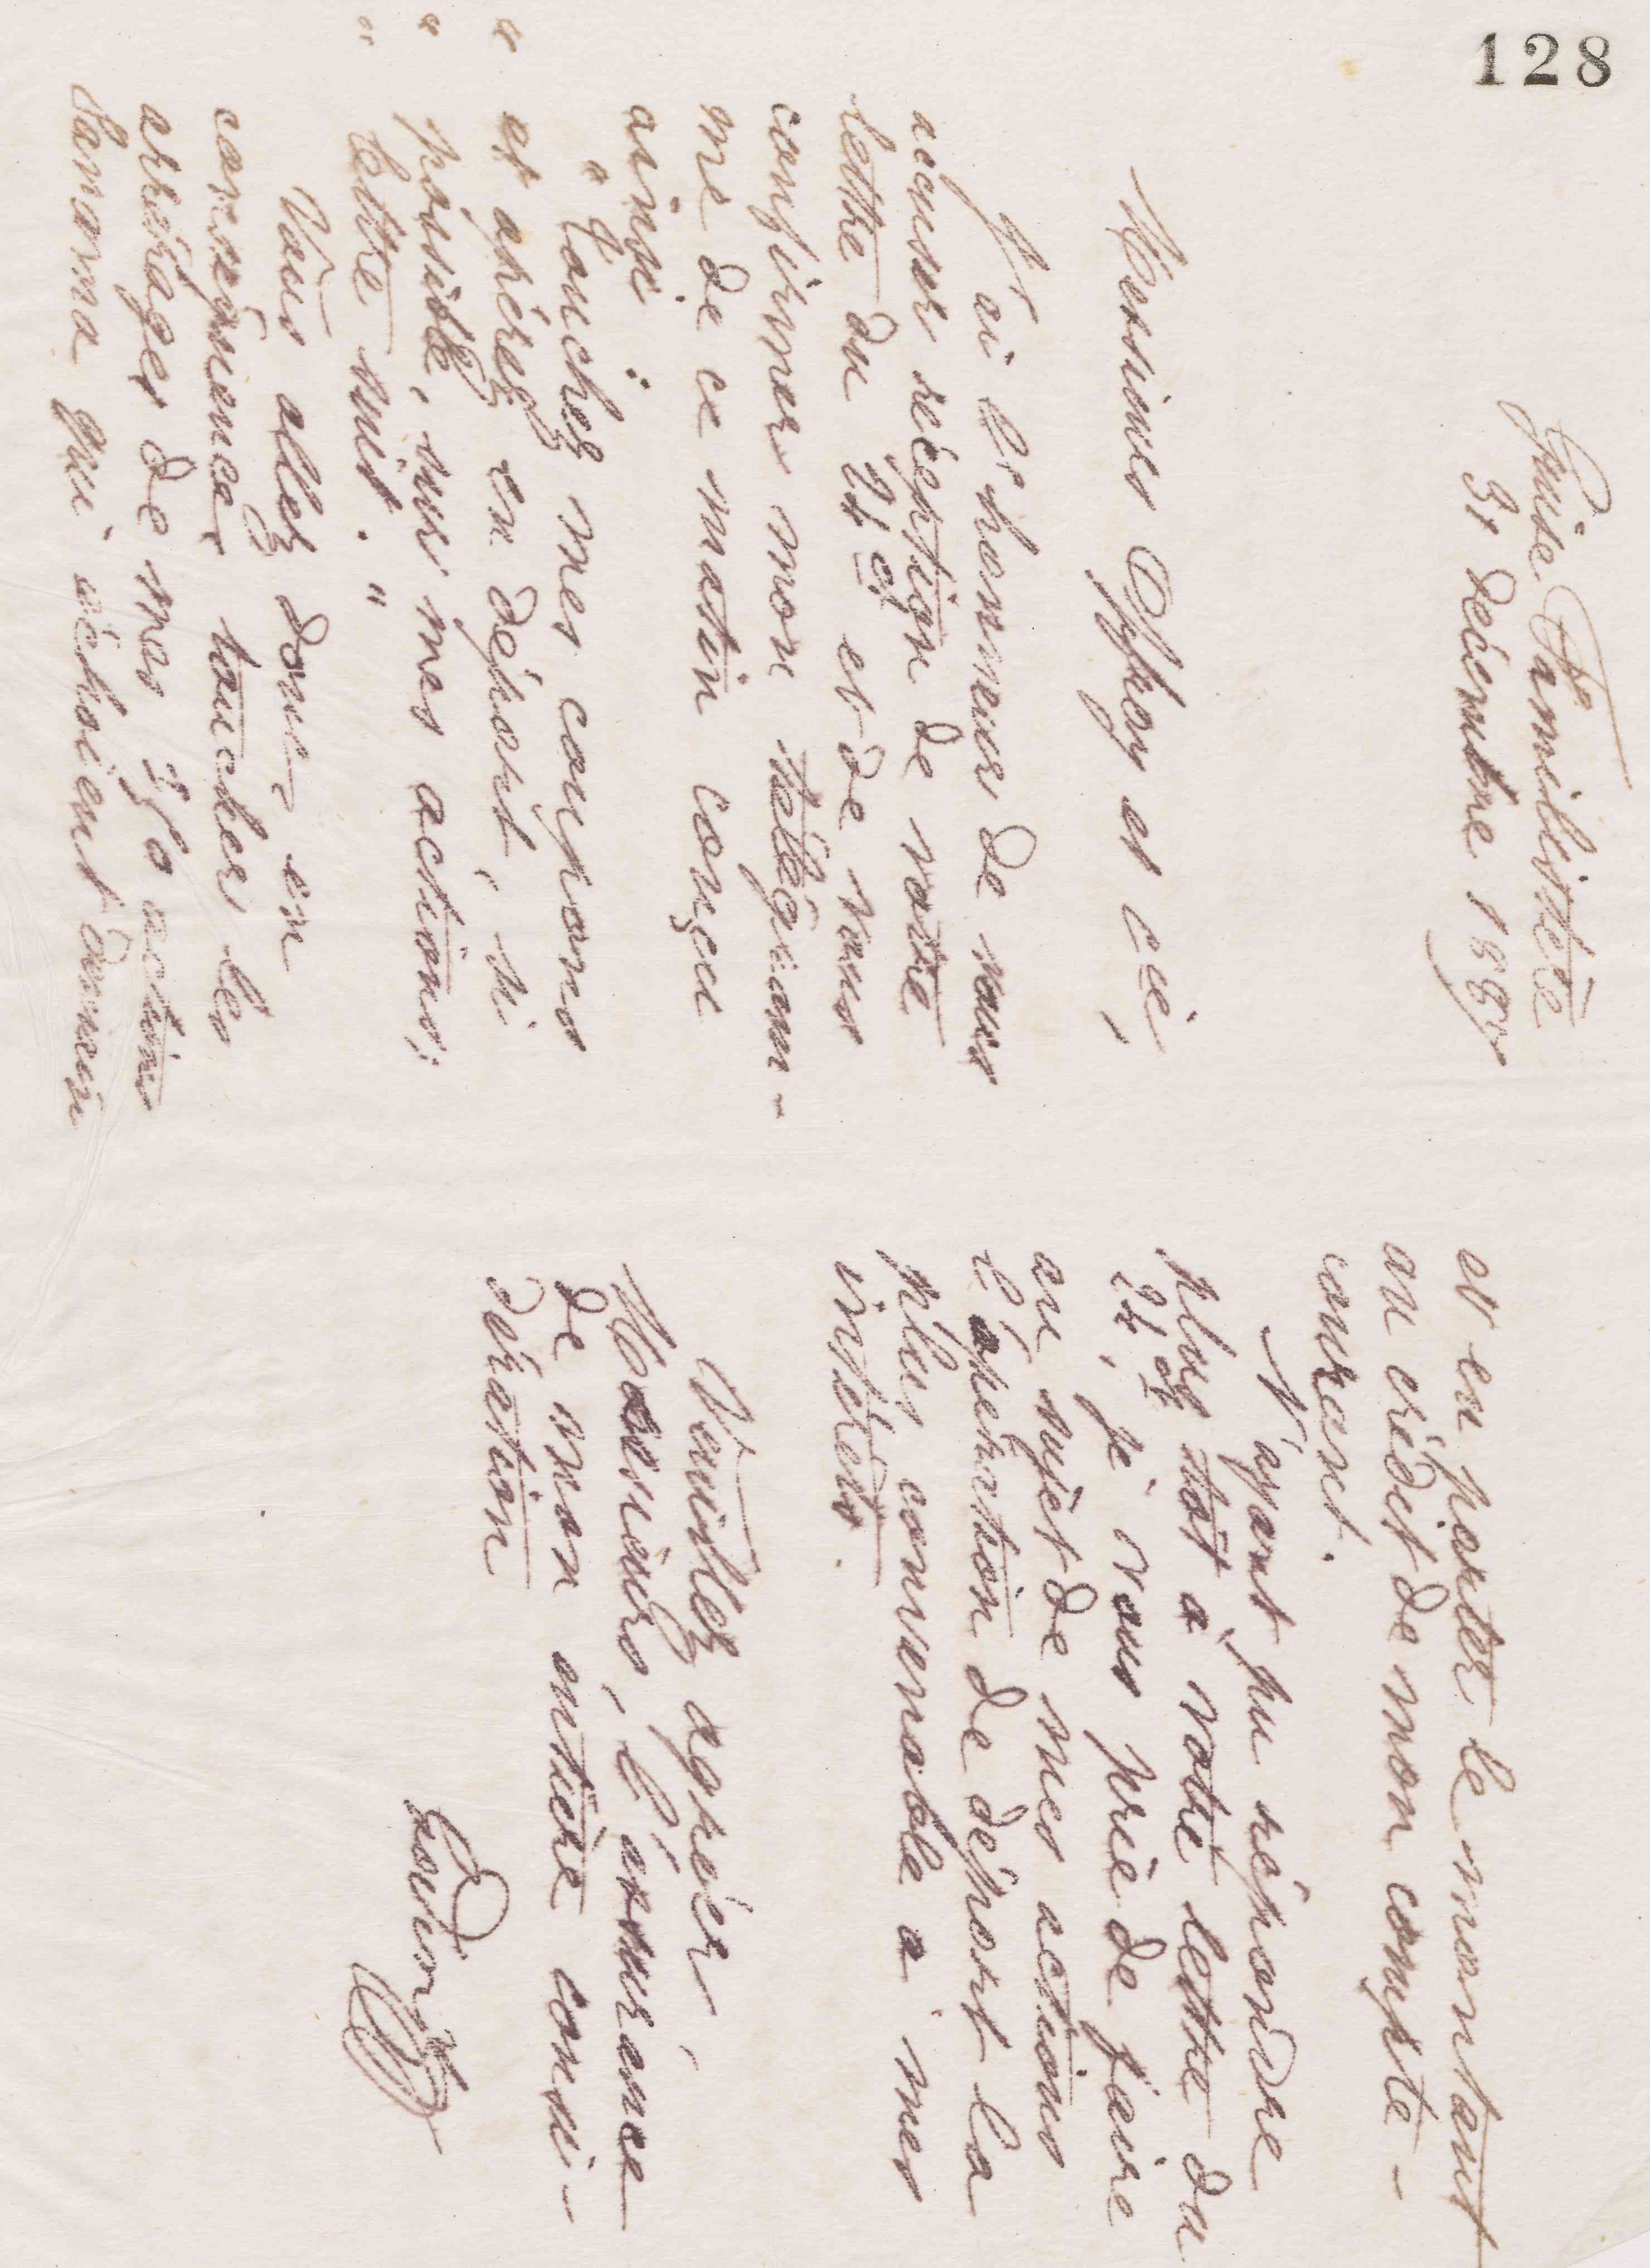 128
Guise. Familistère
31 décembre 1887
Messieurs Offroy et Cie,
J'ai l'honneur de vous
accuser réception de votre
lettre du 24 ct et de vous
confirmer mon télégram-
me de ce matin conçu
ainsi :
" Touchez mes coupons
" et opérez en déport, si
" possible, sur mes actions;
" lettre suit. "
Vous allez donc, en
conséquence, toucher les
arrérages de mes actions
Panama qui échoient demain
et en porter le montant
au crédit de mon compte-
courant.
N'ayant pu répondre
plus tôt à votre lettre du
24 ct, je vous prie de faire
au sujet de mes actions
l'opération de déport la
plus convenable à mes
intérêts.
Veuillez agréer,
Messieurs, l'assurance
de mon entière consi-
dération
Godin